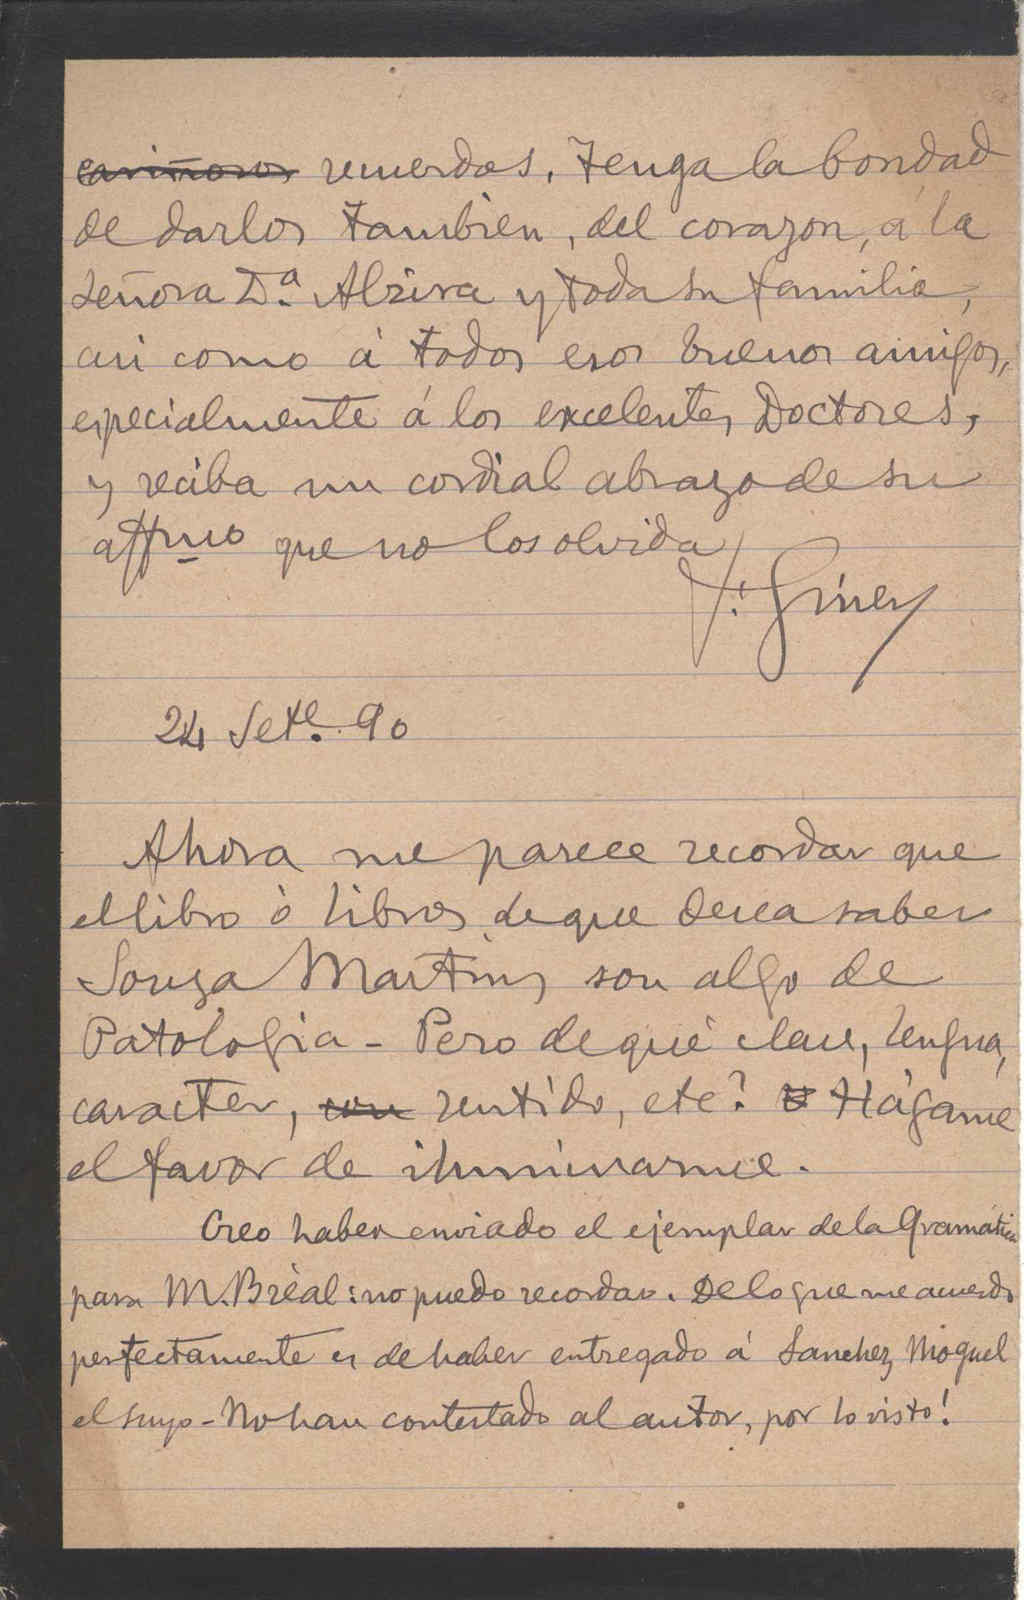 cariñosos recuerdos. Tenga la bondad
de darlos tambien, del corazon, á la
señora D.ª Alzira y toda su familia,
asi como á todos esos buenos amigos,
especialmente á los excelentes Doctores,
y reciba un cordial abrazo de su
affmo que no los olvida
F. Giner
24 Sete. 90
Ahora me parece recordar que
el libro ò libros de que desea saber
Souza Martins son algo de
Patología - Pero de qué clase, lengua,
caracter, con sentido, etc? Hágame
el favor de iluminarme.
Creo haber enviado el ejemplar de la Gramática
para M. Bréal: no puedo recordar. De lo que me acuerdo
perfectamente es de haber entregado á Sanchez Moguel
el suyo - No han contestado al autor, por lo visto!